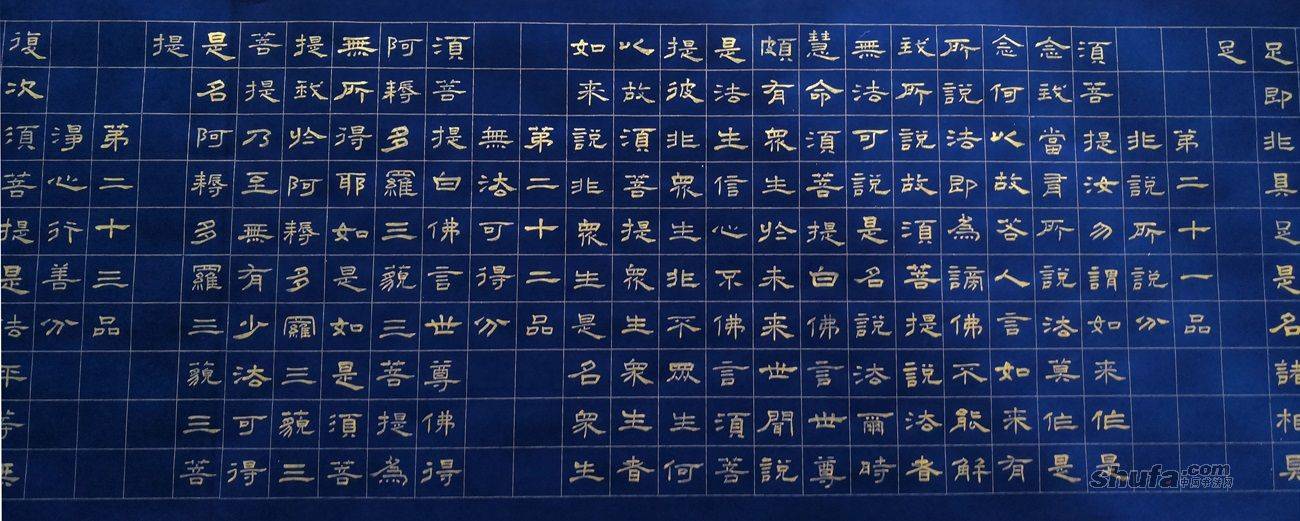 足即非具足是名諸相具
足
第二十一品
非說所說分
須菩提汝勿謂如来作是
念我當有所說法莫作是
念何以故若人言如来有
所說法即為謗佛不能解
我所說故須菩提說法者
無法可說是名說法爾時
慧命須菩提白佛言世尊
頗有眾生於未来世聞說
是法生信心不佛言須菩
提彼非眾生非不眾生何
以故須菩提眾生眾生者
如来說非眾生是名眾生
第二十二品
無法可得分
須菩提白佛言世尊佛得
阿耨多羅三藐三菩提為
無所得耶如是如是須菩
提我於阿耨多羅三藐三
菩提乃至無有少法可得
是名阿耨多羅三藐三菩
提
第二十三品
淨心行善分
復次須菩提是法平等無
shufa.com
中国书法网